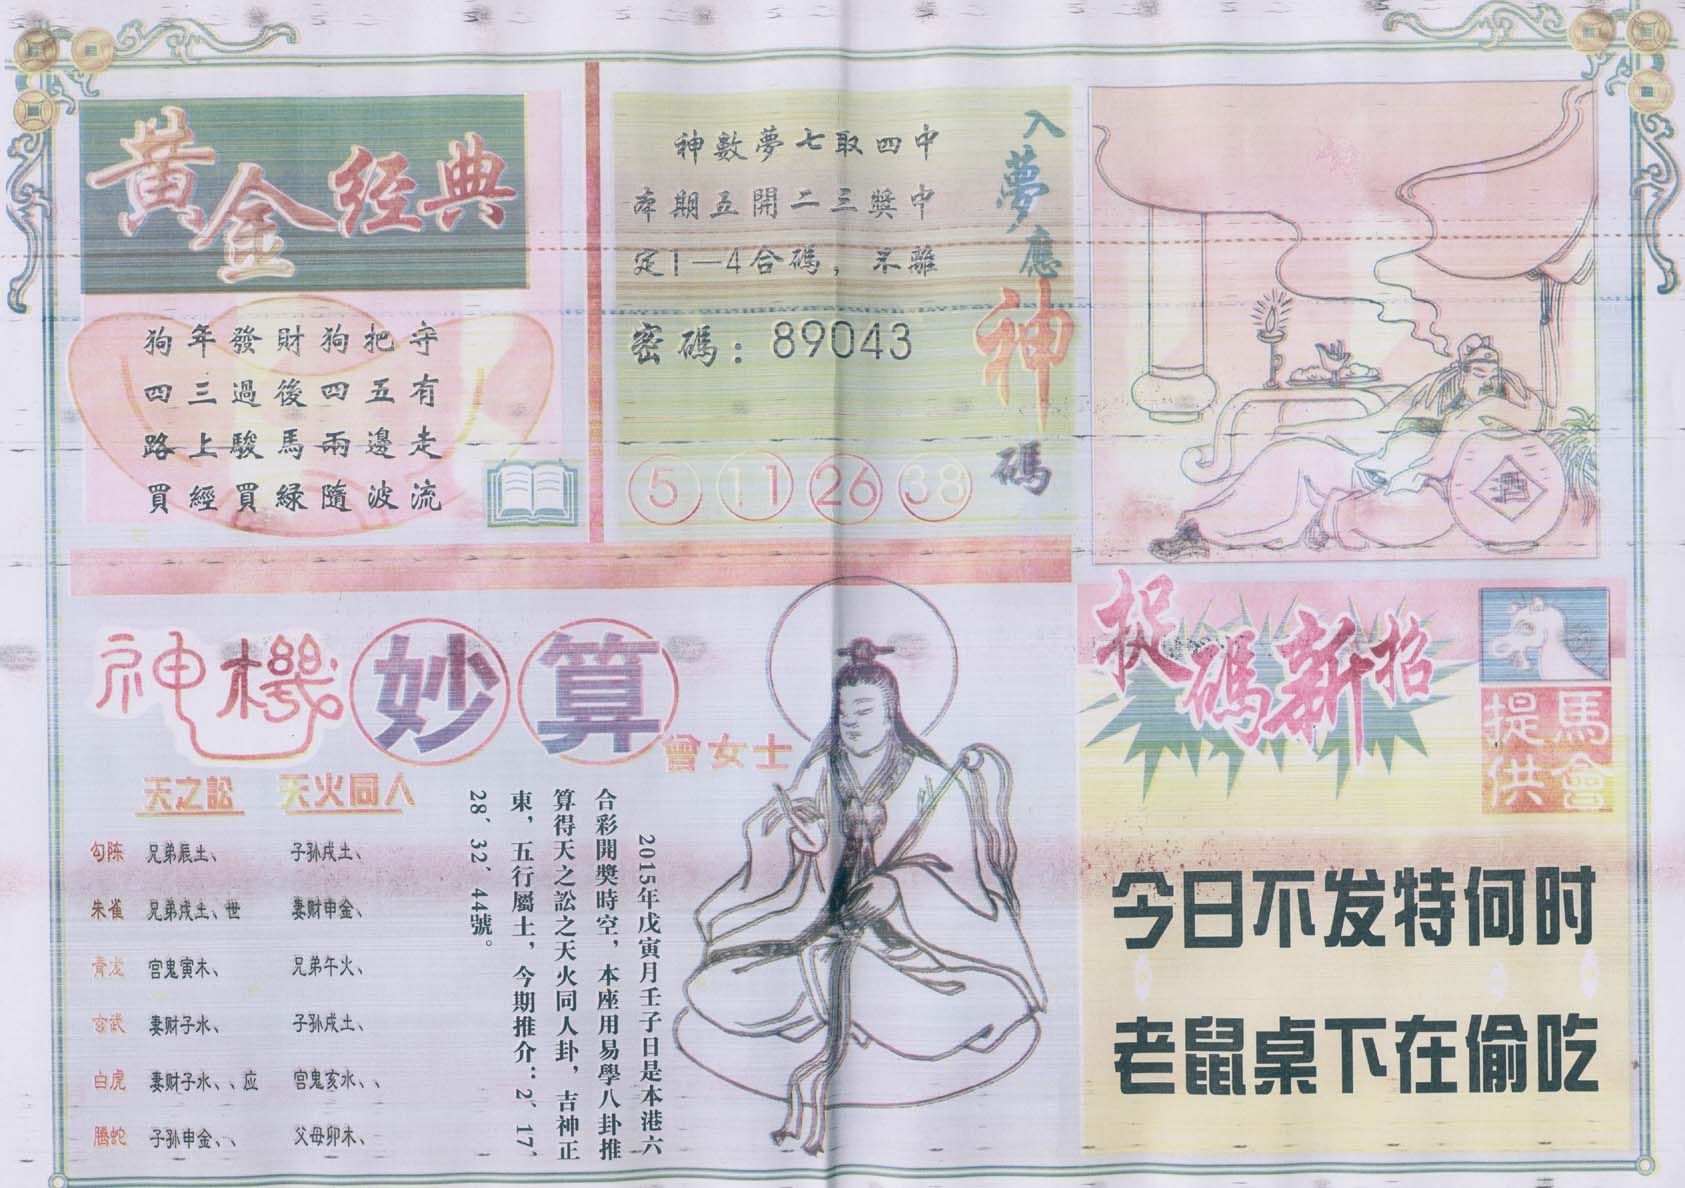 黃金经典
狗年發財狗把守
四三過後四五有
路上駿馬兩邊走
買經買緑隨波流
入夢應神碼
神數夢七取四中
本期五開二三獎中
定1—4合碼，不離
密碼：89043
5 11 26 38
神機妙算
曾女士
天之訟 天火同人
勾陈 兄弟辰土、 子孙戌土、
朱雀 兄弟戌土、世 妻财申金、
青龙 宫鬼寅木、 兄弟午火、
玄武 妻财子水、 子孙戌土、
白虎 妻财子水、、应 宫鬼亥水、、
腾蛇 子孙申金、、 父母卯木、
2015年戊寅月壬子日是本港六
合彩開獎時空，本座用易學八卦推
算得天之訟之天火同人卦，吉神正
東，五行屬土，今期推介：2、17、
28、32、44號。
捉碼新招
馬會
提供
今日不发特何时
老鼠桌下在偷吃